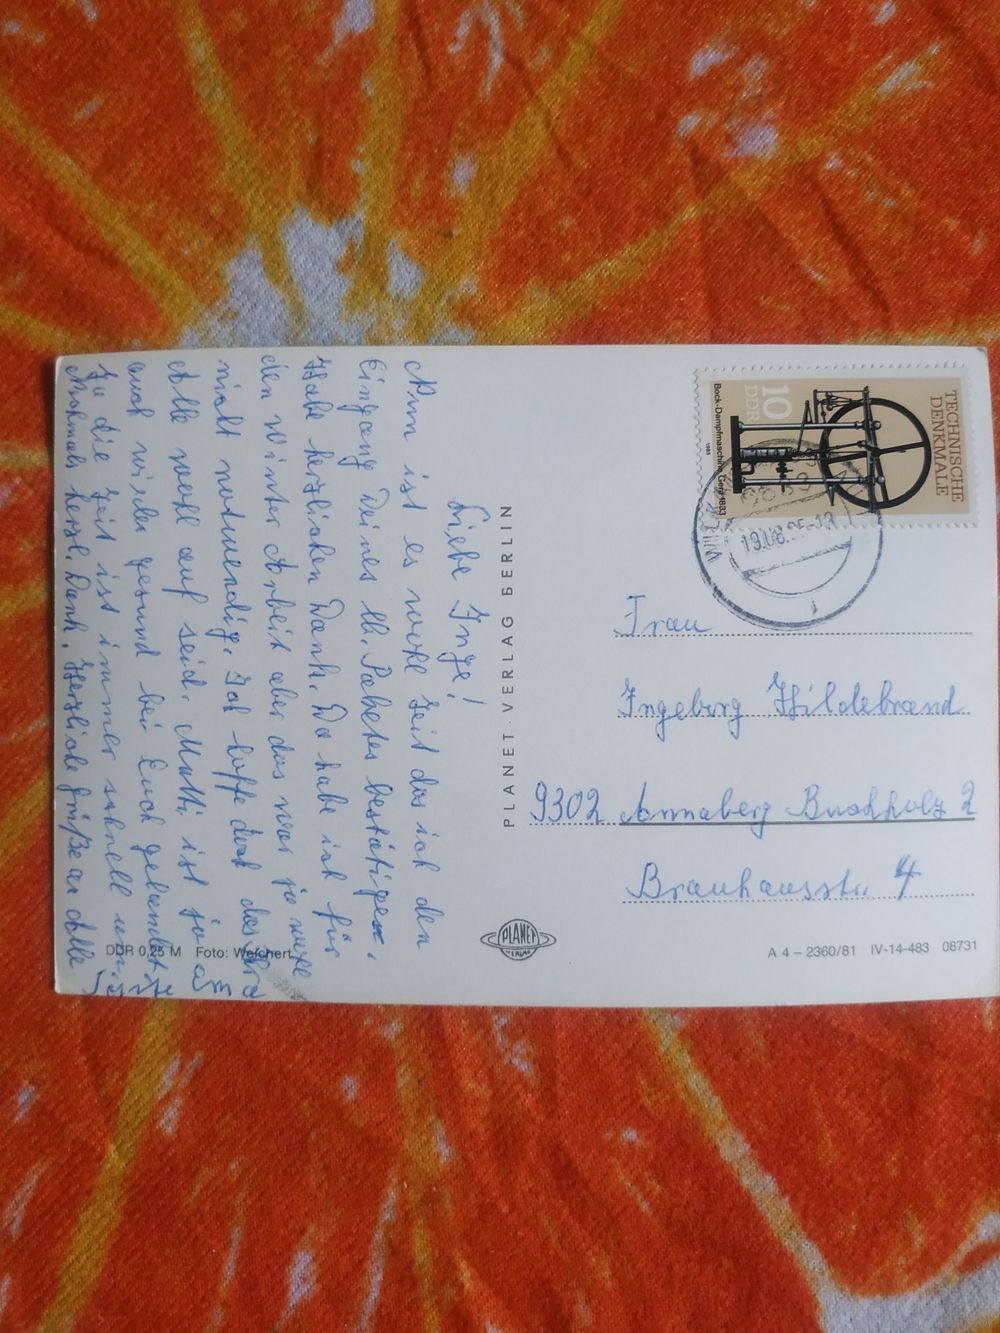 Liebe Inge!
Nun ist es wohl Zeit das ich den
Eingang Deines lb. Paketes bestätigen.
Habe herzlichen Dank. Da habe ich für
den Winter Arbeit aber das war ja
nicht notwendig. Ich hoffe doch das Ihr
Alle wohl auf seid. Mutti ist ja
auch wieder gesund bei Euch gelandet.
Ja die Zeit ist immer schnell
Nochmals herzl. Dank. Herzliche Grüße an Alle
TECHNISCHE
DENKMALE
10
DDR
Bock-Dampfmaschine Gera 1833
1985
19.08.85-12
PLANET-VERLAG BERLIN
Frau
Ingeborg Hildebrand
9302 Annaberg Buchholz 2
Brauhausstr. 4
DDR 0,25 M Foto: Weichert
PLANET
VERLAG
A 4 – 2360/81 IV-14-483 08731